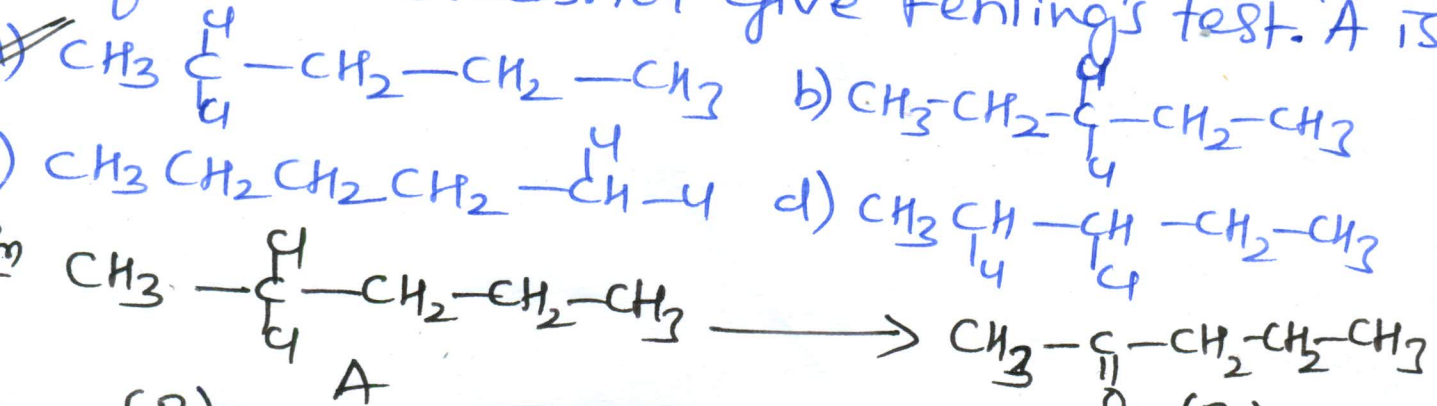 give Fehling's test. A is
) CH3 C(Cl)(Cl) — CH2 — CH2 — CH3 b) CH3-CH2-C(Cl)(Cl)-CH2-CH3
) CH3 CH2 CH2 CH2 — CH(Cl) — Cl d) CH3 CH(Cl) — CH(Cl) — CH2 — CH3
CH3 — C(Cl)(Cl) — CH2 — CH2 — CH3 → CH3 — C(=O) — CH2 — CH2 — CH3
A